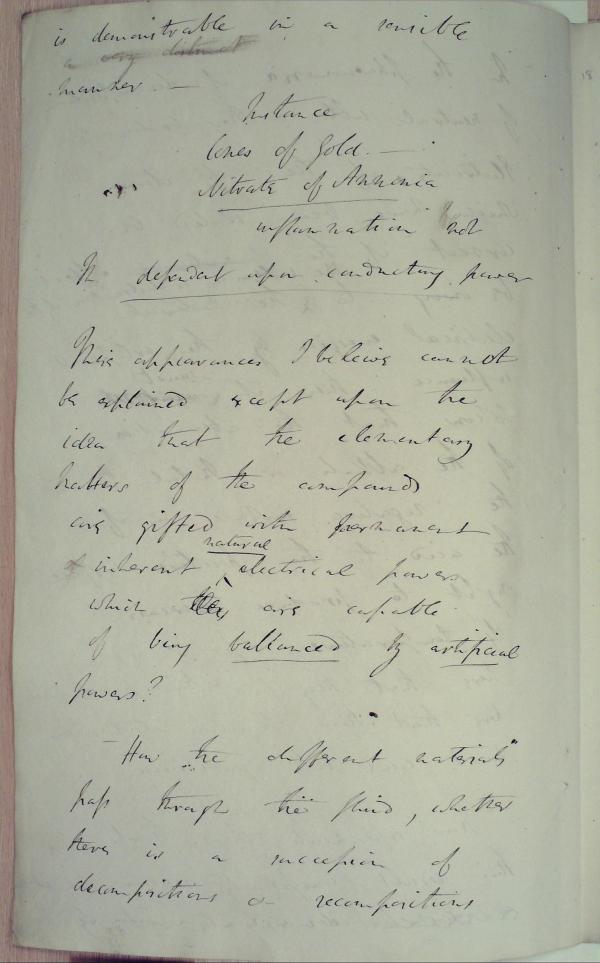 is demonstrable in a sensible
a very distinct
manner —
Instance
Cones of Gold. —
Nitrate of Ammonia
inflammation not
dependent upon conducting power
These appearances I believe cannot
be explained except upon the
idea that the elementary
matters of the compounds
are gifted with permanent
& inherent natural electrical powers
which they are capable
of being ballanced by artificial
powers?
— How the different materials
pass through the fluid, whether
there is a succession of
decompositions or recompositions